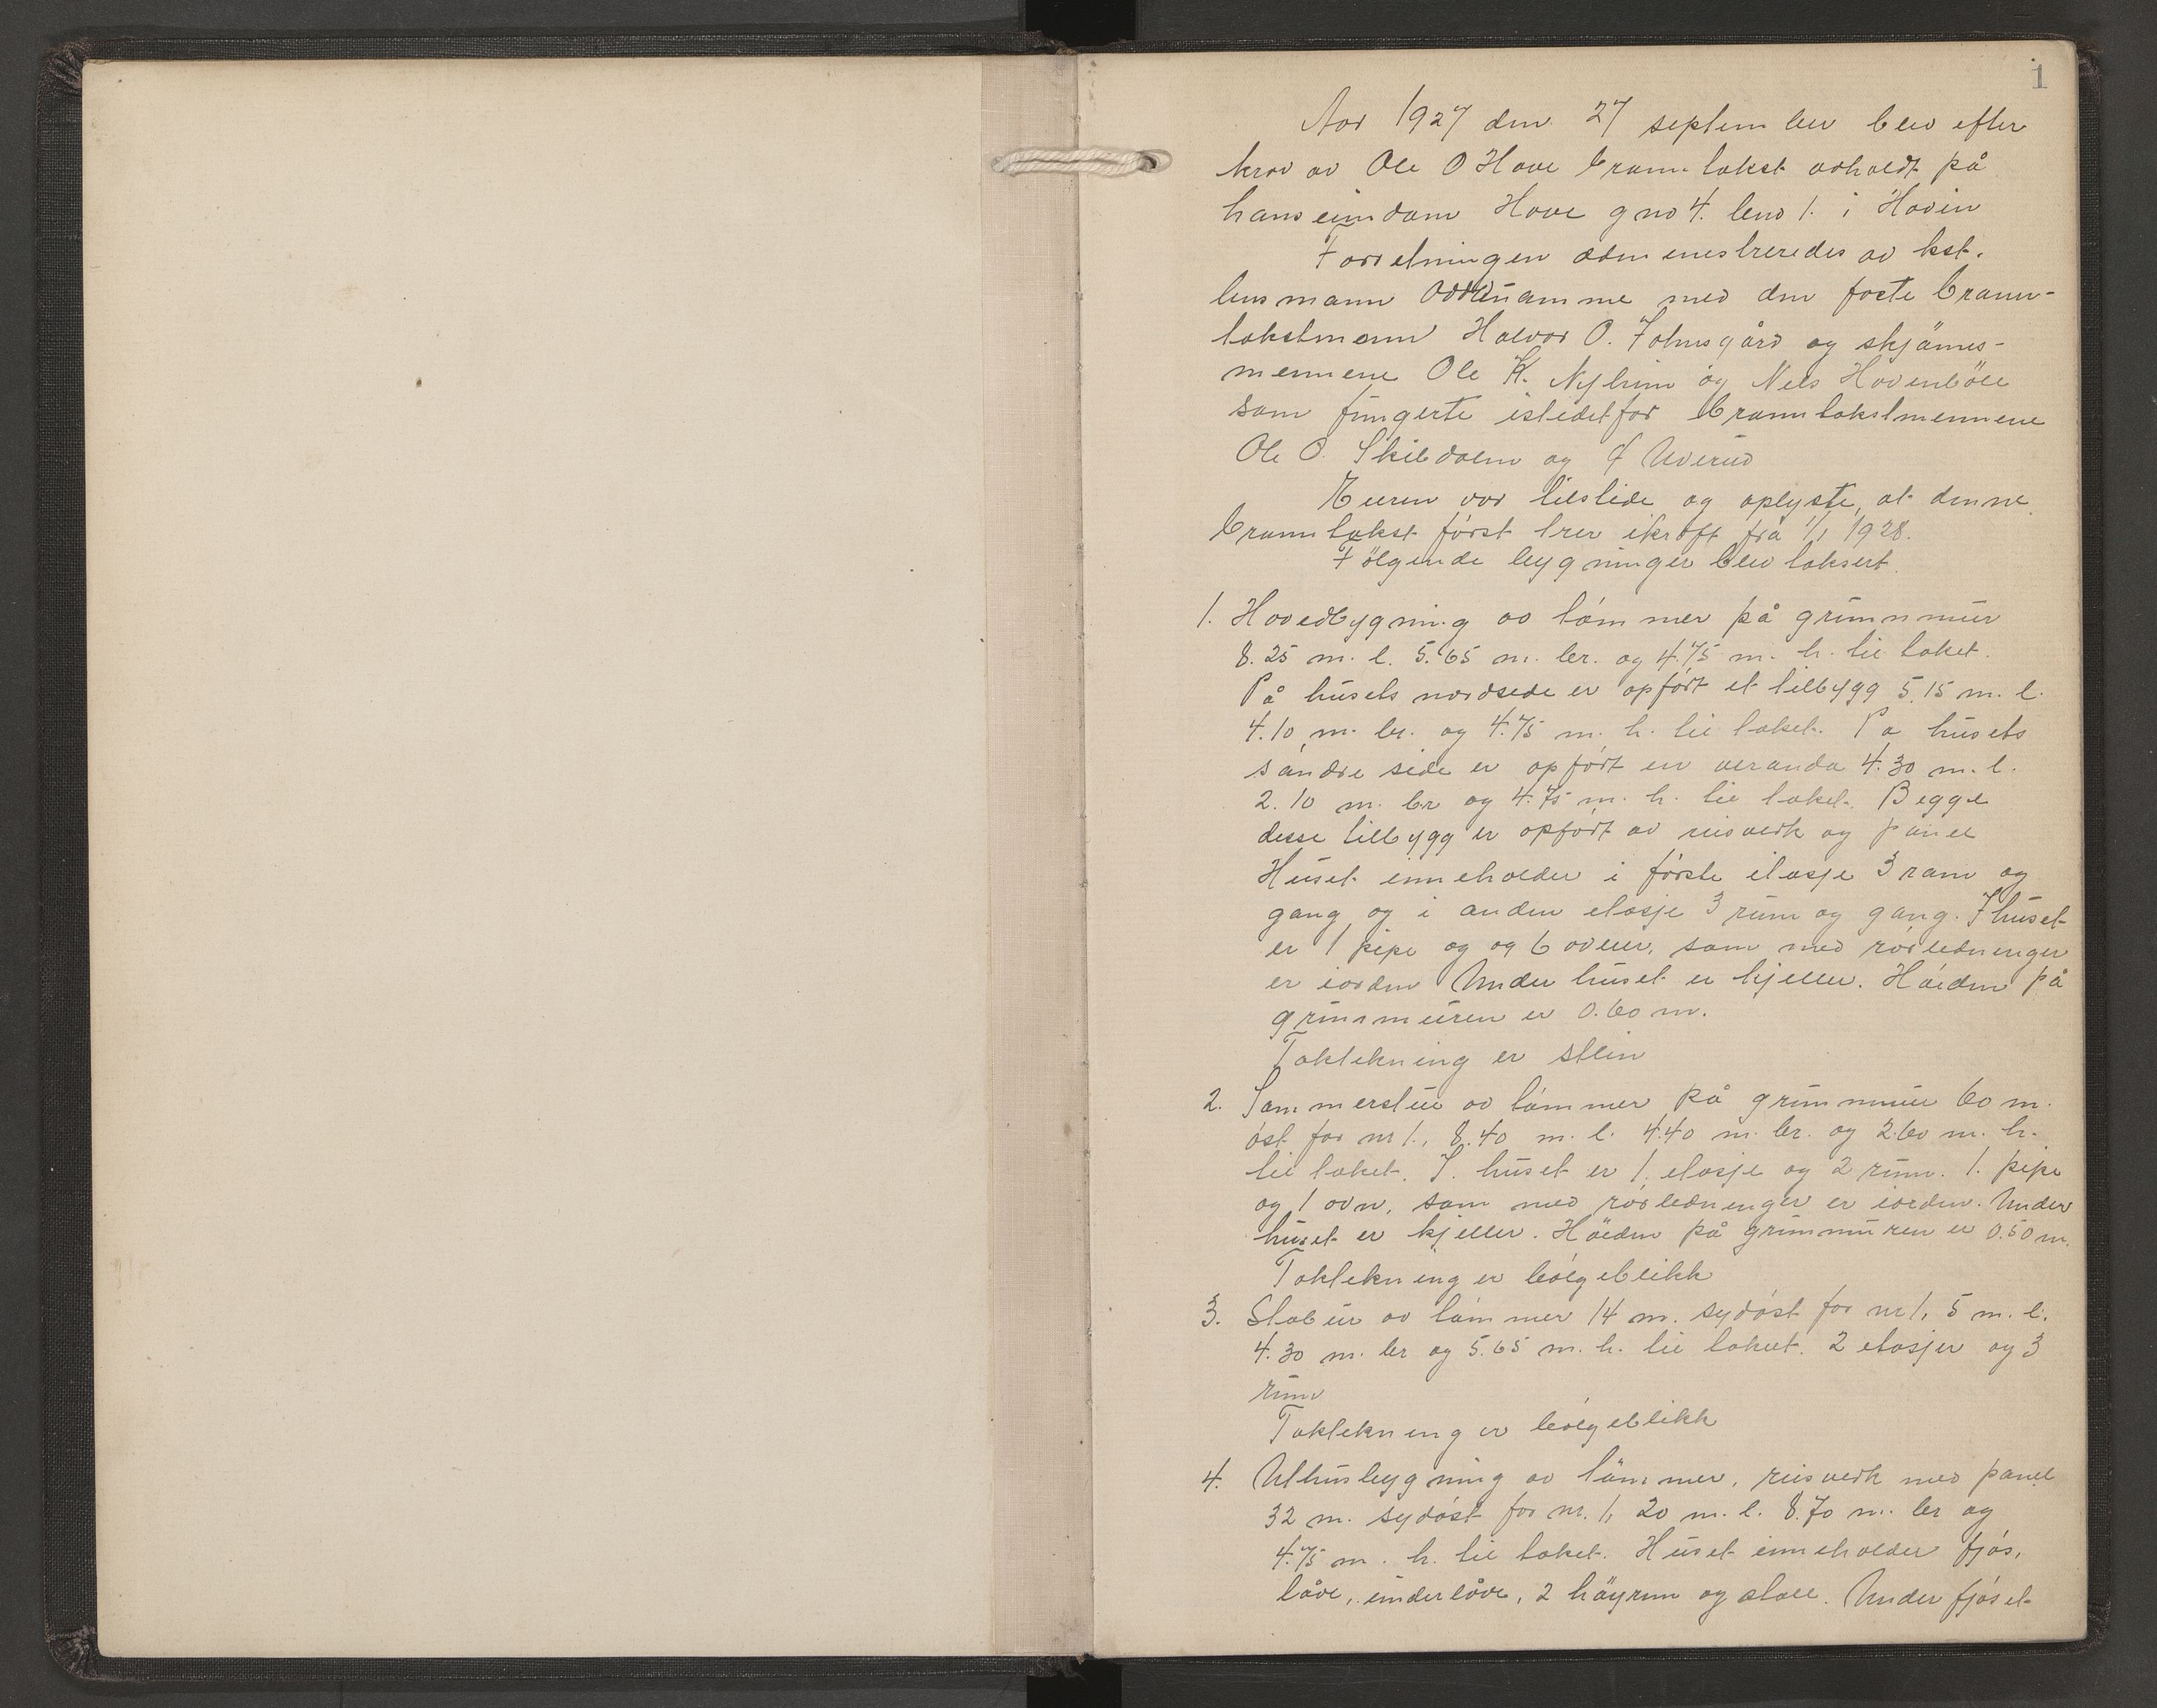 1
Aar 1927 den 27 september blev efter
krav av Ole O Hove branntakst avholdt på
hans eiendom Hove gno 4. bno 1. i Hovin
Forretningen administreredes av kst.
lensmann med den faste brann-
takstmann Halvor O. Johnsgård og skjønns-
mennene Ole K. Nyheim og Nels Hovenbøle
som fungerte istedetfor branntakstmennene
Ole O. Skibdalen og Uverud
Eieren var tilstede og oplyste, at denne
branntakst først trer ikraft fra 1/1 1928.
Følgende bygninger blev taksert.
1. Hovedbygning av tømmer på grunnmur
8.25 m. l. 5.65 m. br. og 4.75 m. h. til taket.
På husets nordside er opført et tilbygg 5.15 m. l.
4.10 m. br. og 4.75 m. h. til taket. Pa husets
søndre side er opført en veranda 4.30 m. l.
2.10 m. br og 4.75 m. h. til taket. Begge
disse tilbygg er opført av reisverk og panel
Huset inneholder i første etasje 3 rom og
gang og i anden etasje 3 rum og gang. I huset
er 1 pipe og og 6 ovner, som med rørledninger
er iorden Under huset er kjeller. Høiden på
grunnmuren er 0.60 m.
Taktekning er stein
2. Sommerstue av tømmer på grunnmur 60 m.
øst for nr 1., 8.40 m. l. 4.40 m. br. og 2.60 m. h.
til taket. I. huset er 1. etasje og 2 rum. 1. pipe
og 1 ovn, som med rørledninger er iorden. Under
huset er kjeller. Høiden på grunnmuren er 0.50 m.
Taktekning er bølgeblikk
3. Stabur av tømmer 14 m. sydøst for nr 1, 5 m. l.
4.30 m. br og 5.65 m. h. til taket. 2 etasjer og 3
rum
Taktekning er bølgeblikk
4. Uthusbygning av tømmer, reisverk med panel
32 m. sydøst for nr. 1, 20 m. l. 8.70 m. br og
4.75 m. h. til taket. Huset inneholder fjøs,
låve, underlåve, 2 høyrum og stall. Under fjøset